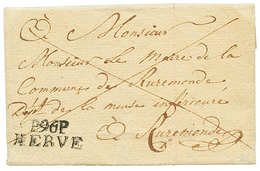 A Monsieur
Monsieur le Maire de la
Commune de Ruremonde
Dépt de la meuse inférieure
P96P
HERVE
A Ruremonde